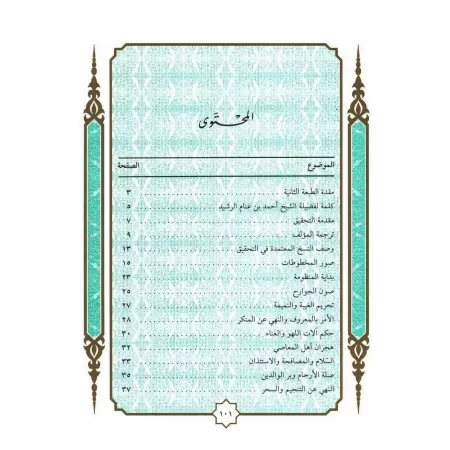 المحتوى
الموضوع الصفحة
مقدمة الطبعة الثانية ٣
كلمة لفضيلة الشيخ أحمد بن غنام الرشيد ٥
مقدمة التحقيق ٧
ترجمة المؤلف ٩
وصف النسخ المعتمدة في التحقيق ١٣
صور المخطوطات ١٥
بداية المنظومة ٢٣
صون الجوارح ٢٥
تحريم الغيبة والنميمة ٢٧
الأمر بالمعروف والنهي عن المنكر ٢٨
حكم آلات اللهو والغناء ٣٠
هجران أهل المعاصي ٣٢
السلام والمصافحة والاستئذان ٣٣
صلة الأرحام وبر الوالدين ٣٥
النهي عن التنجيم والسحر ٣٧
١٠١